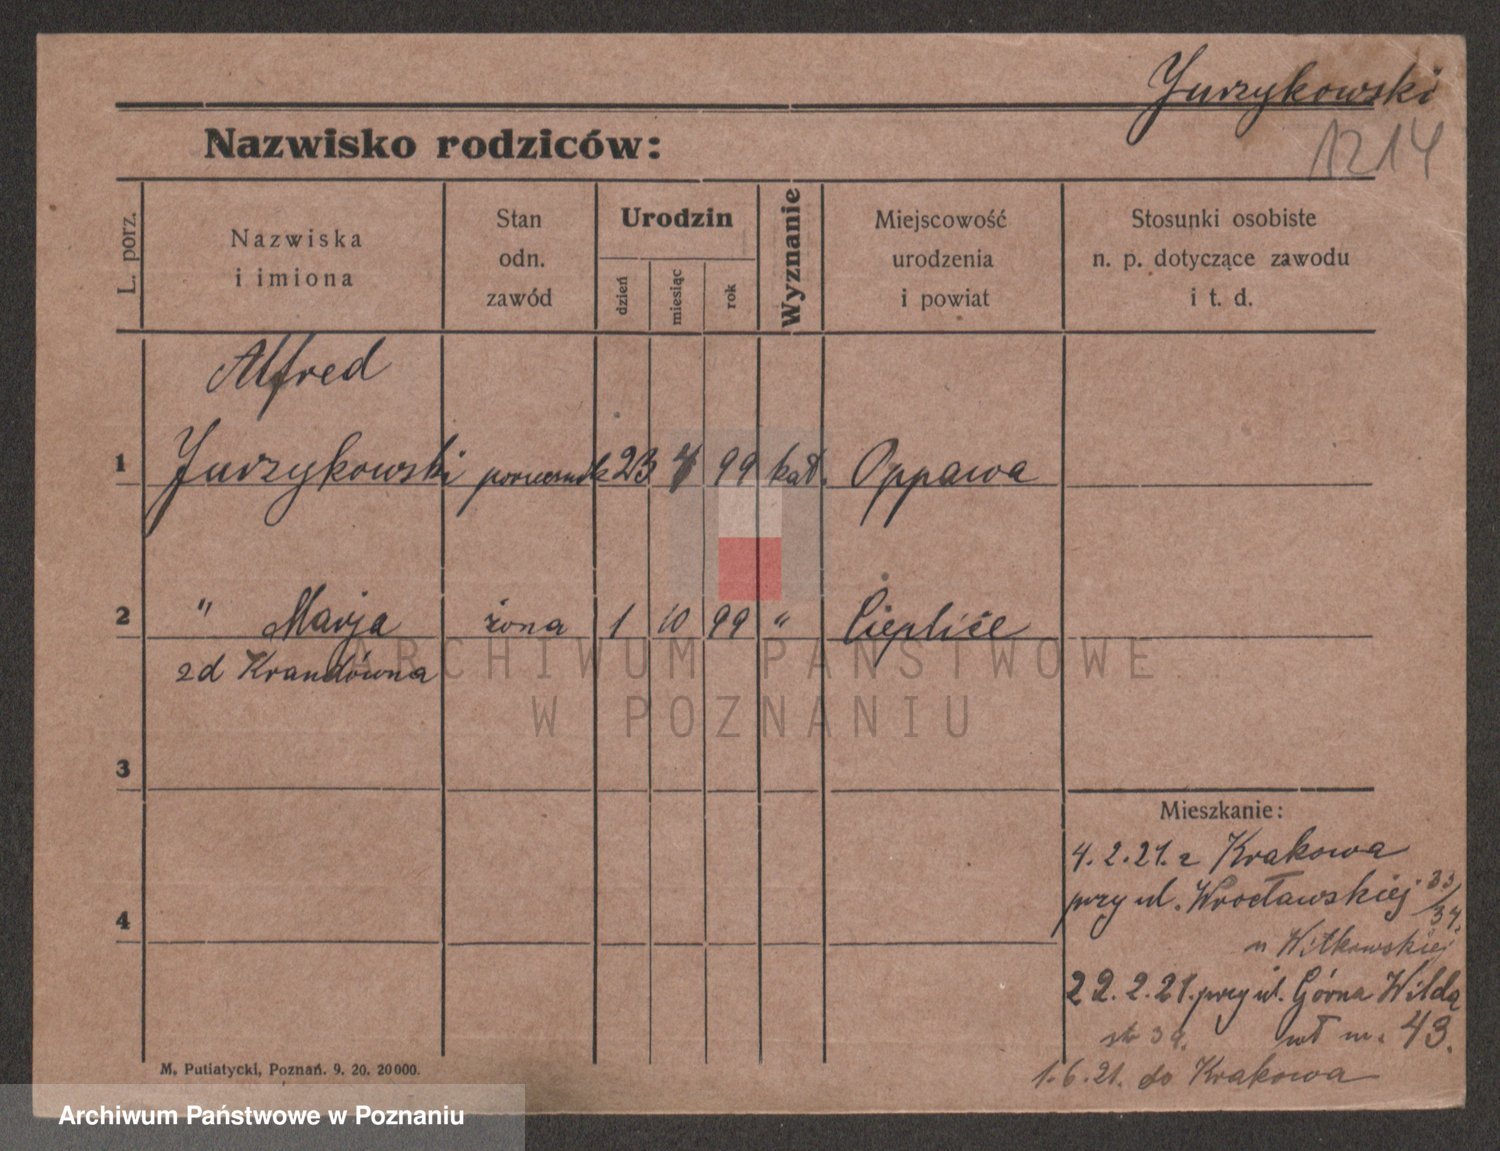 Jurzykowski
1214
Nazwisko rodziców:
L. porz.
Nazwiska
i imiona
Stan
odn.
zawód
Urodzin
dzień
miesiąc
rok
Wyznanie
Miejscowość
urodzenia
i powiat
Stosunki osobiste
n. p. dotyczące zawodu
i t. d.
Alfred
1 Jurzykowski porucznik 23 7 99 kat. Oppawa
2 " Marja żona 1 10 99 " Cieplice
zd Krandówna
3
4
Mieszkanie:
4.2.21. z Krakowa
przy ul. Wrocławskiej 33/34.
u Witkowskiej
22.2.21. przy ul. Górna Wilda
m. 43.
1.6.21. do Krakowa
M. Putiatycki, Poznań. 9. 20. 20000.
ARCHIWUM PAŃSTWOWE
W POZNANIU
Archiwum Państwowe w Poznaniu